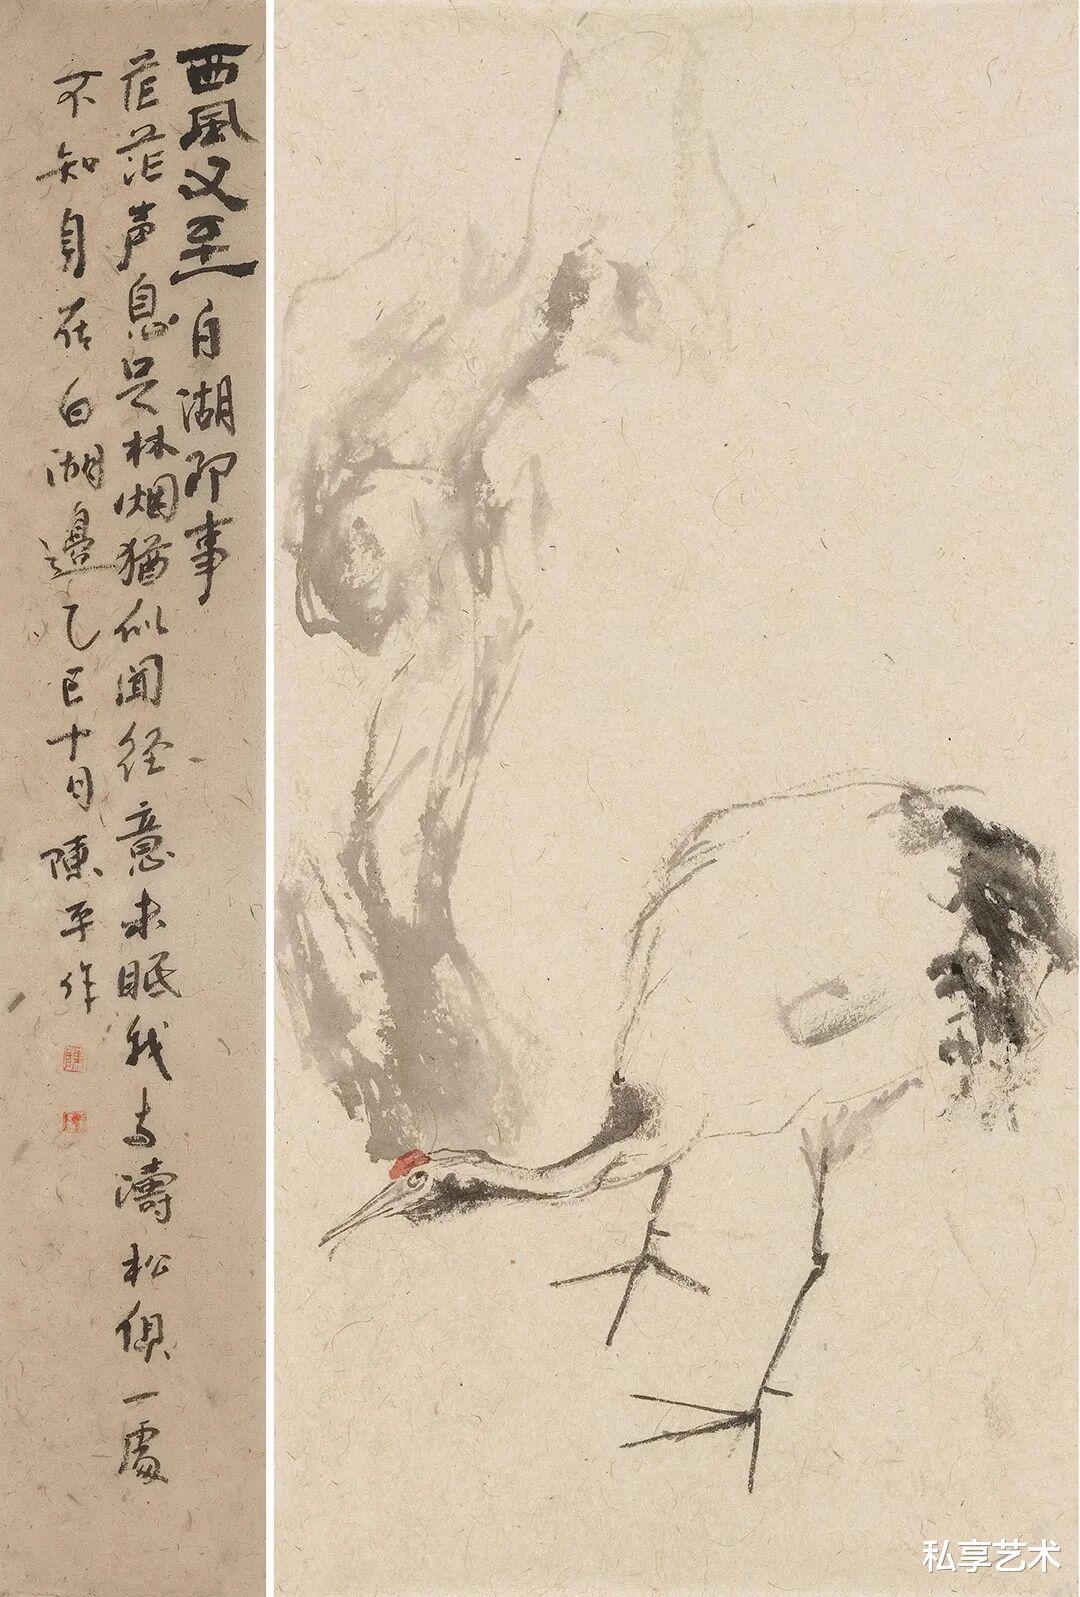 西風又至 白湖即事
茫茫声息是林烟猶似聞経意未眠我与濤松俱一處
不知身在白湖邊乙巳十月陳平作
私享艺术